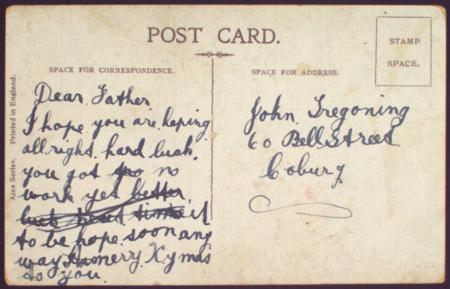 POST CARD.
STAMP
SPACE.
SPACE FOR CORRESPONDENCE.
SPACE FOR ADDRESS.
Ajax Series. Printed in England.
Dear Father
I hope you are keping
all right. hard luck.
you got no
work yet better
luck time it
to be hope soon any
way merry Xymas
to you.
John Tregoning
60 Bell Street
Coburg